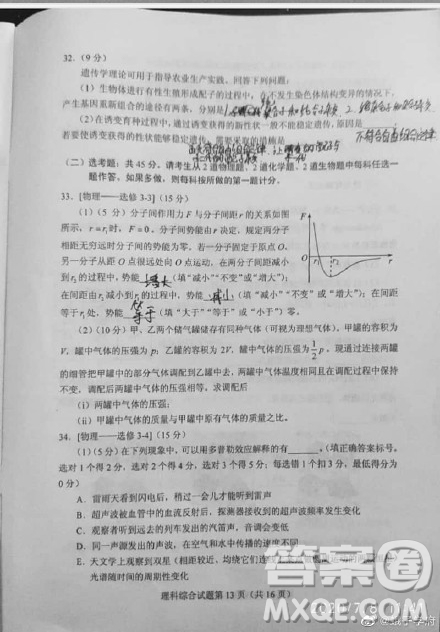 32.(9分)
遗传学理论可用于指导农业生产实践。回答下列问题:
(1)生物体进行有性生殖形成配子的过程中,在不发生染色体结构变异的情况下,
产生基因重新组合的途径有两条,分别是
(2)在诱变育种过程中,通过诱变获得的新性状一般不能稳定遗传,原因是
若要使诱变获得的性状能够稳定遗传,需要采取的措施是
(二)选考题:共45分。请考生从2道物理题、2道化学题、2道生物题中每科任选一
题作答。如果多做,则每科按所做的第一题计分。
33.[物理——选修3-3](15分)
(1)(5分)分子间作用力F与分子间距r的关系如图
所示,r=r₁时,F=0。分子间势能由r决定,规定两分子
相距无穷远时分子间的势能为零。若一分子固定于原点O,
另一分子从距O点很远处向O点运动,在两分子间距减小
到r₂的过程中,势能 增大 (填“减小”“不变”或“增大”);
在间距由r₂减小到r₁的过程中,势能 减小 (填“减小”“不变”或“增大”);在间距
等于r₁处,势能 等于 (填“大于”“等于”或“小于”)零。
F
O
r₁
r₂
r
(2)(10分)甲、乙两个储气罐储存有同种气体(可视为理想气体)。甲罐的容积为
V,罐中气体的压强为p;乙罐的容积为2V,罐中气体的压强为1/2 p。现通过连接两罐
的细管把甲罐中的部分气体调配到乙罐中去,两罐中气体温度相同且在调配过程中保持
不变,调配后两罐中气体的压强相等。求调配后
(i)两罐中气体的压强;
(ii)甲罐中气体的质量与甲罐中原有气体的质量之比。
34.[物理——选修3-4](15分)
(1)(5分)在下列现象中,可以用多普勒效应解释的有______。(填正确答案标号。
选对1个得2分,选对2个得4分,选对3个得5分;每选错1个扣3分,最低得分为
0分)
A.雷雨天看到闪电后,稍过一会儿才能听到雷声
B.超声波被血管中的血流反射后,探测器接收到的超声波频率发生变化
C.观察者听到远去的列车发出的汽笛声,音调会变低
D.同一声源发出的声波,在空气和水中传播的速度不同
E.天文学上观察到双星(相距较近、均绕它们连
光谱随时间的周期性变化
理科综合试题第13页(共16页)